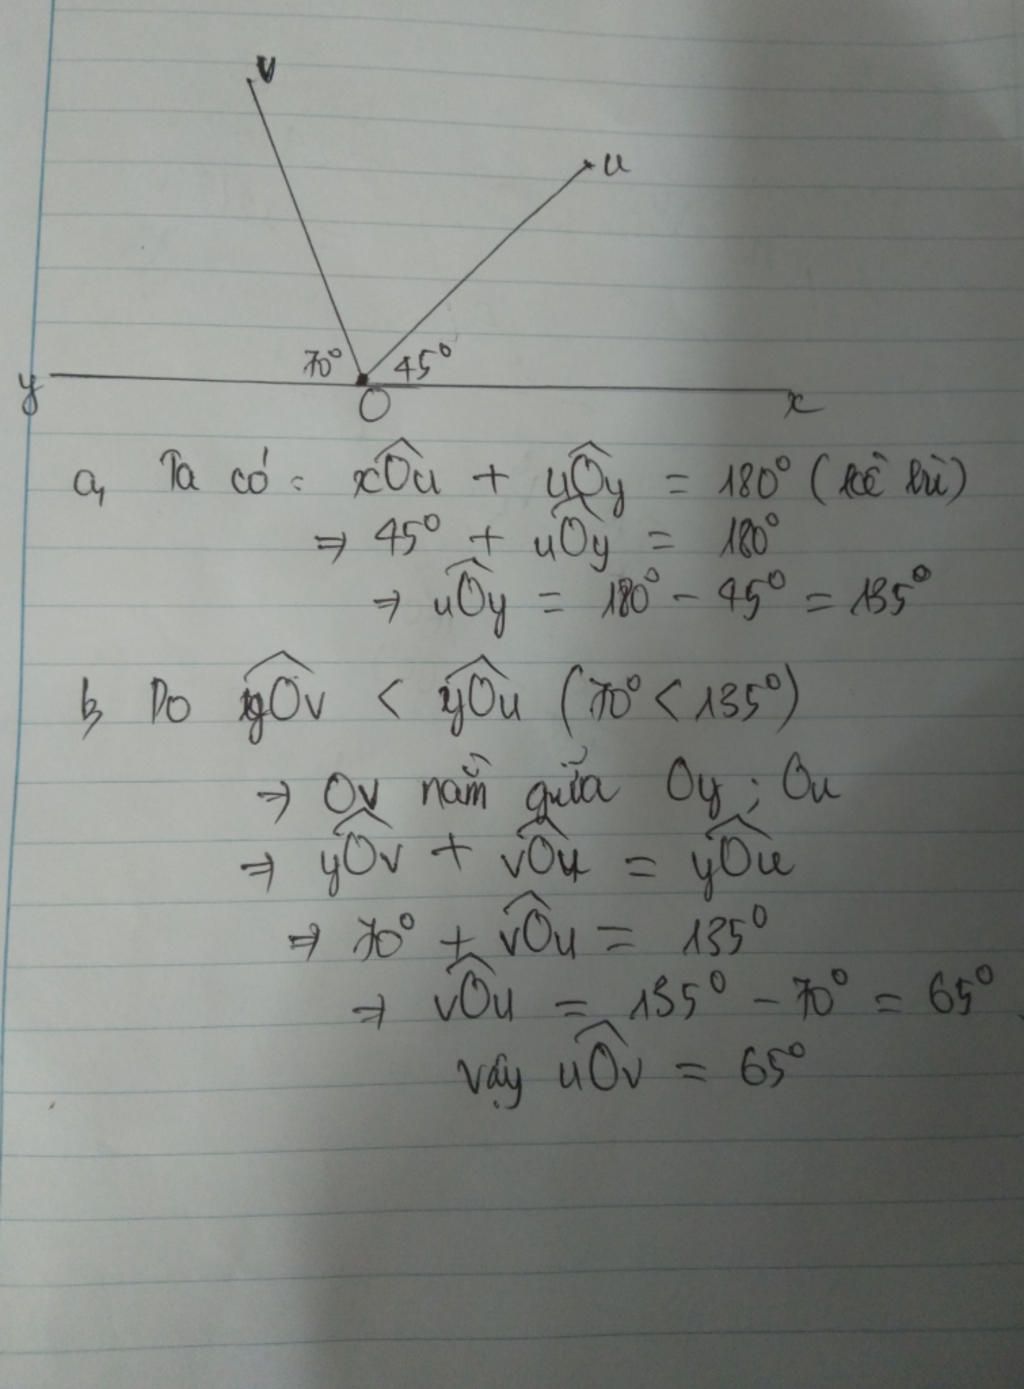 v
u
70° 45°
y O x
a, Ta có: xÔu + uÔy = 180° (kề bù)
⇒ 45° + uÔy = 180°
⇒ uÔy = 180° - 45° = 135°
b, Do yÔv < yÔu (70° < 135°)
⇒ Ov nằm giữa Oy ; Ou
⇒ yÔv + vÔu = yÔu
⇒ 70° + vÔu = 135°
⇒ vÔu = 135° - 70° = 65°
Vậy uÔv = 65°